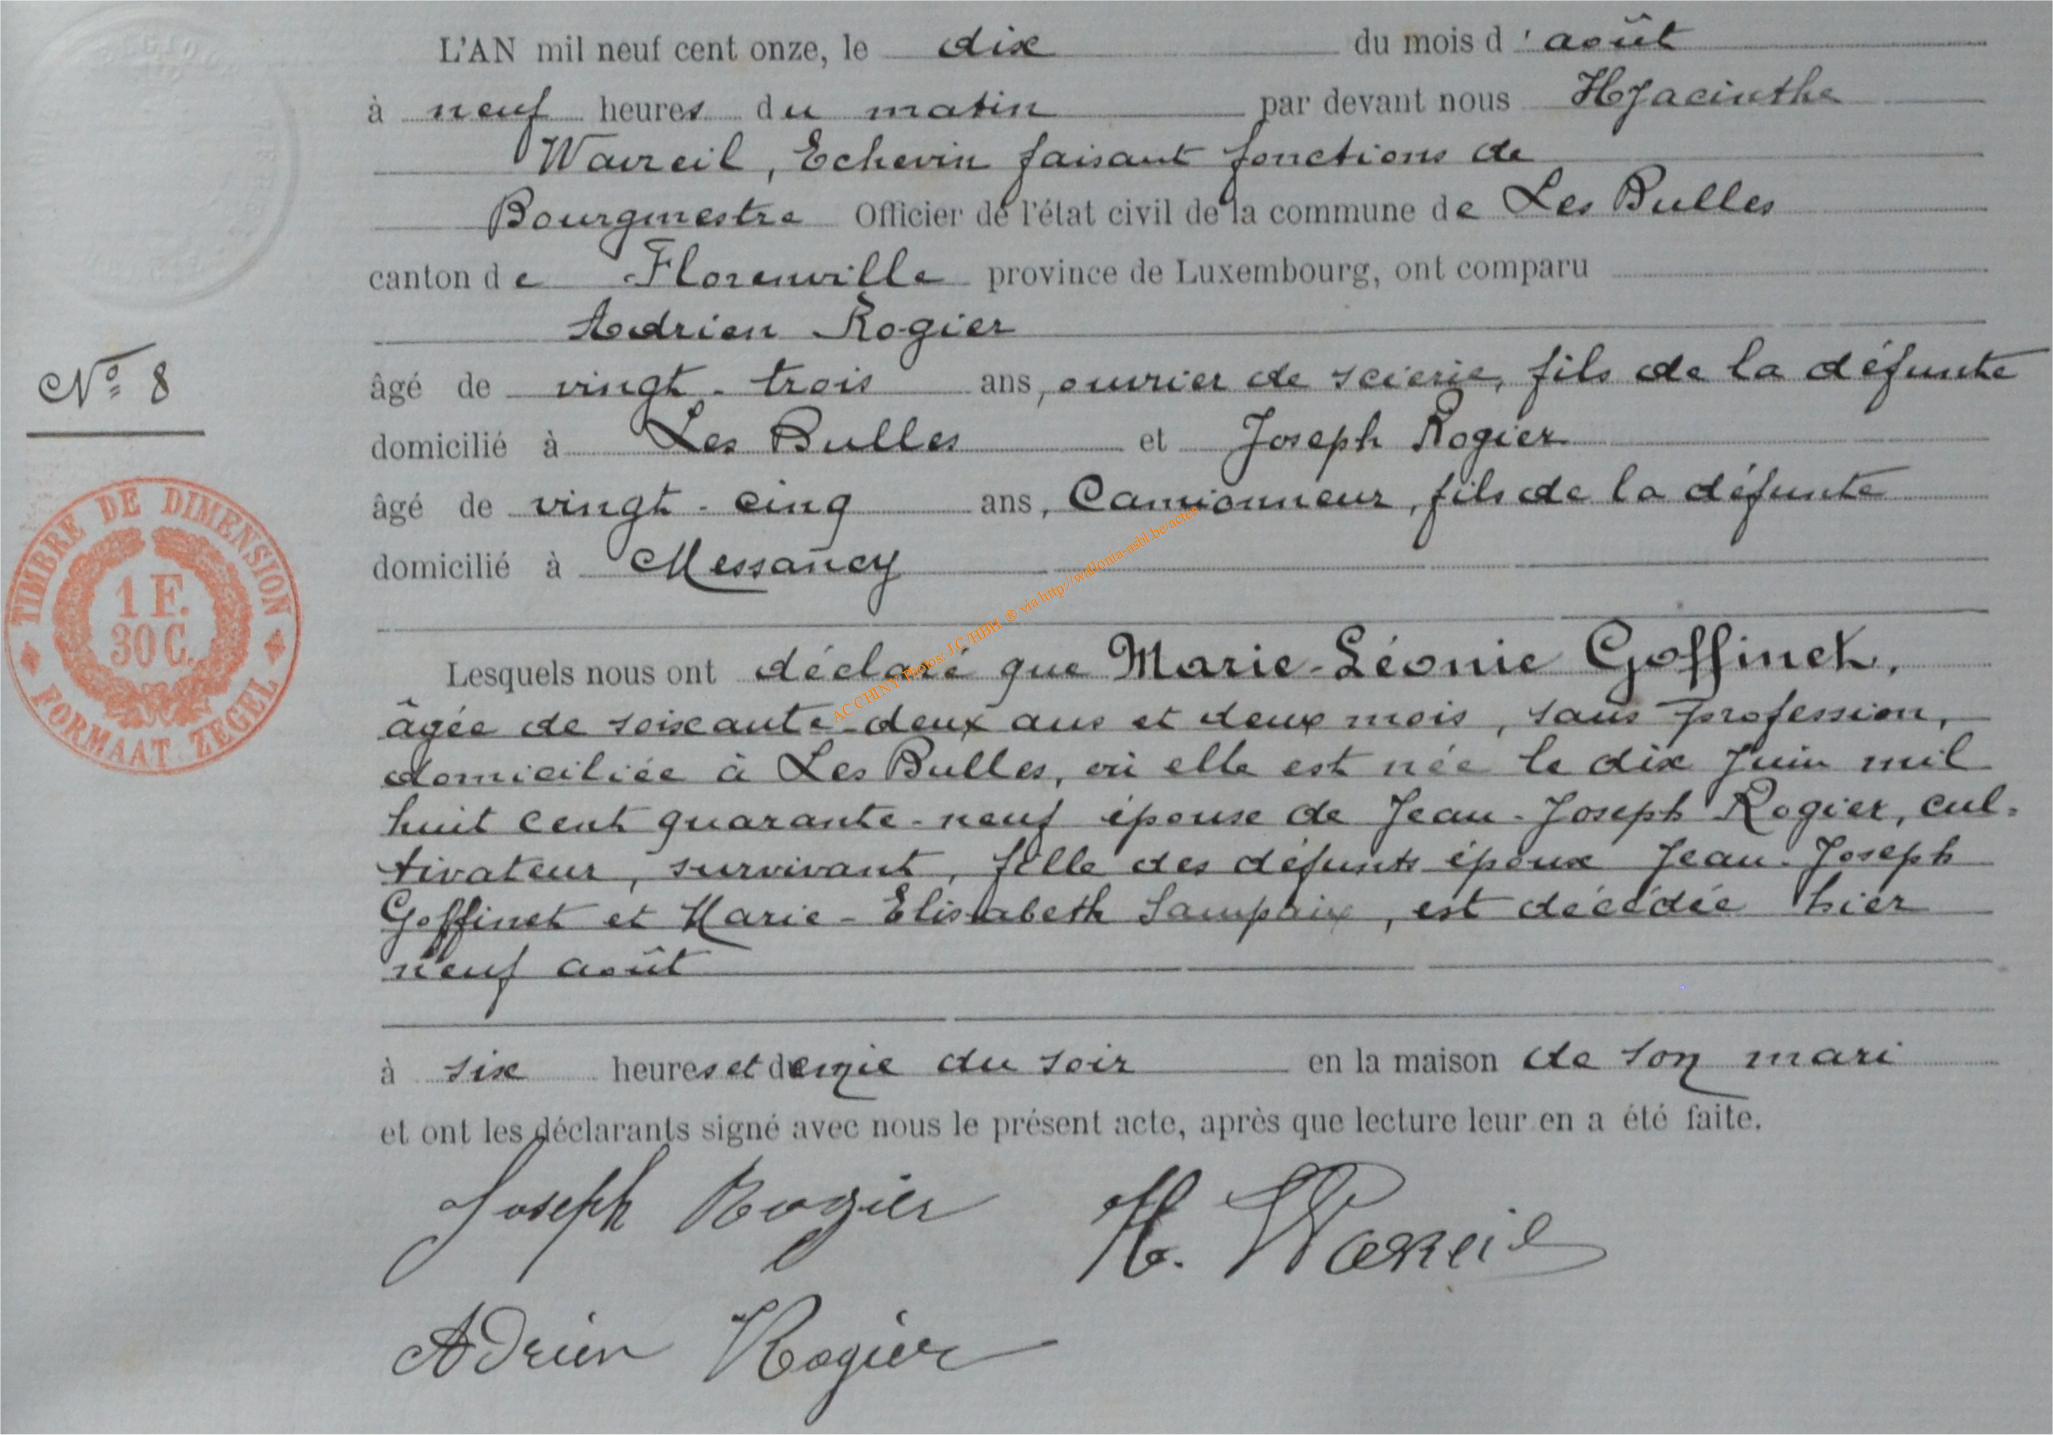 L'AN mil neuf cent onze, le dix du mois d'août
à neuf heures du matin par devant nous Hyacinthe
Wavreil, Echevin faisant fonctions de
Bourgmestre Officier de l'état civil de la commune de Les Bulles
canton de Florenville province de Luxembourg, ont comparu
Adrien Rogier
Nº 8
âgé de vingt-trois ans, ouvrier de scierie, fils de la défunte
domicilié à Les Bulles et Joseph Rogier
âgé de vingt-cinq ans, Camionneur, fils de la défunte
domicilié à Messancy
TIMBRE DE DIMENSION
1 F.
30 C.
FORMAAT ZEGEL
AC CHINY Photos: J.C./HBH ® via http://wallonia-asbl.be/actes
Lesquels nous ont déclaré que Marie-Léonie Goffinet,
âgée de soixante-deux ans et deux mois, sans profession,
domiciliée à Les Bulles, où elle est née le dix Juin mil
huit cent quarante-neuf épouse de Jean-Joseph Rogier, cul-
tivateur, survivant, fille des défunts époux Jean-Joseph
Goffinet et Marie-Elisabeth Lampaix, est décédée hier
neuf août
à six heures et demie du soir en la maison de son mari
et ont les déclarants signé avec nous le présent acte, après que lecture leur en a été faite.
Joseph Rogier H. Wavreil
Adrien Rogier